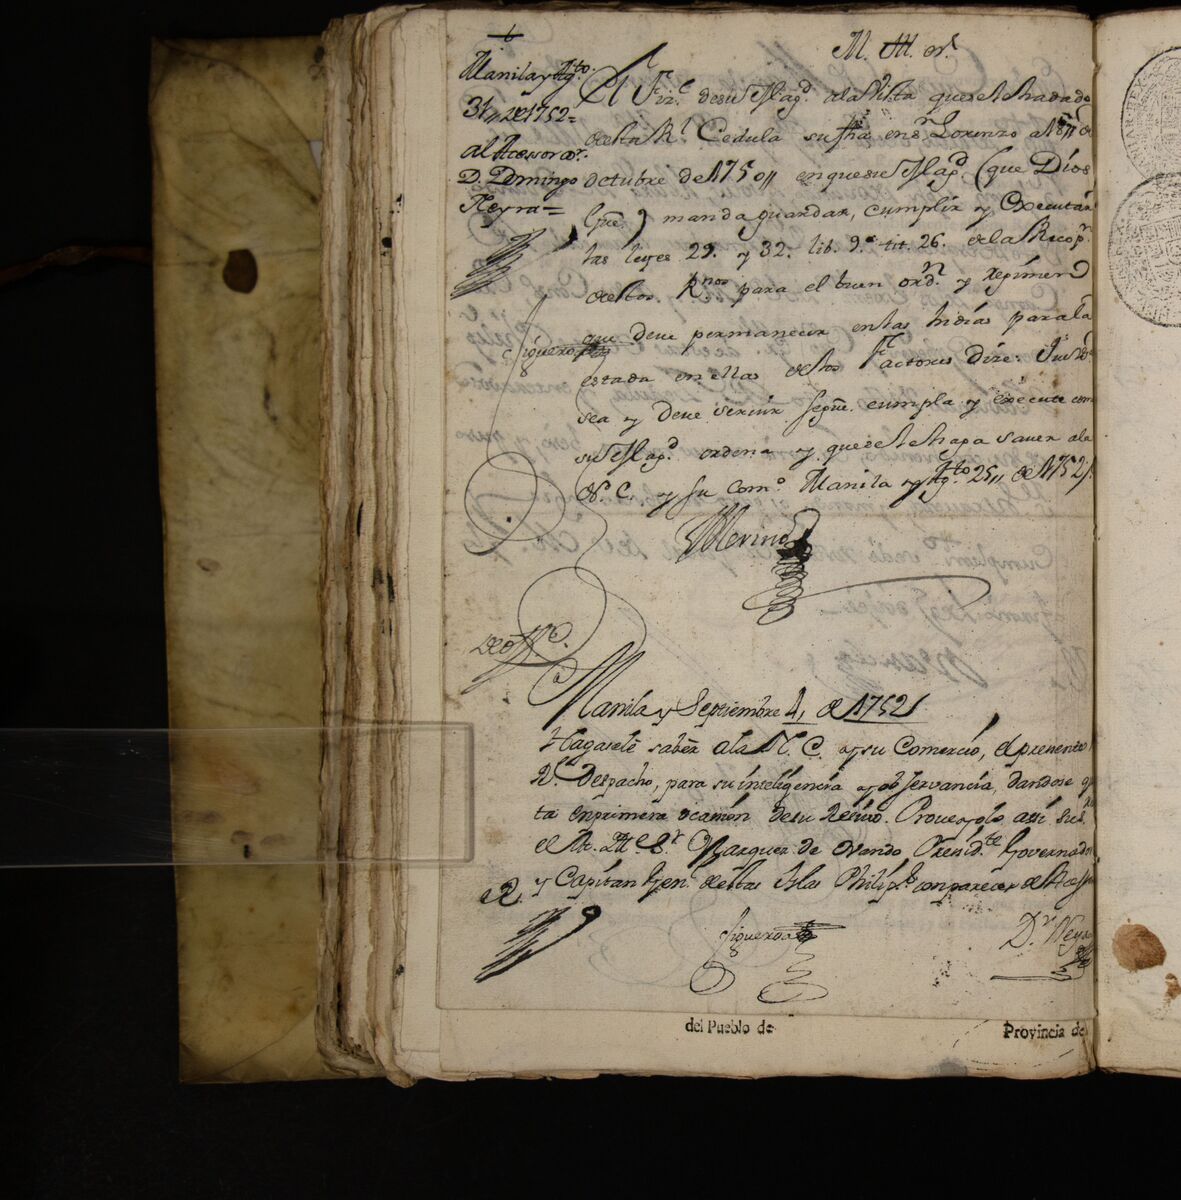 Manila y Agto.
31,, de 1752=
al Acessor Dr.
D. Domingo
Neyra=
Figueroa
M. Ill. or.
El Fiz.l de su Mag.d a la Vista que se le ha dado
de esta Rl. Cedula su fha en Sn. Lorenzo a 18,, de
octubre de 1750,, en que su Mag.d (que Dios
gue) manda guardar, cumplir y executar
las leyes 29. y 32. lib. 9. tit. 26. de la Recop.n
de estos Rnos para el buen ordn. y regimen
que deve permanecer en las Indias para la
estada en ellas de los Factores Dize: Que
sea y deve servir se gue. cumpla y execute com
su Mag.d ordena y que se le haga saver a la
N. C. y su Com.o Manila y Agto 25,, de 1752,,
Merino
Manila y Septiembre 4, de 1752,,
Hagasele saber a la N. C. y su Comercio, el presente
Rl. Despacho, para su inteligencia y observancia, dandose q
ta en primera ocasion de su Recivo. Proveyolo assi su S.
el M. Ille Sr. Marques de Ovando Presid.te Governador
y Capitan Gen.l de estas Islas Philip.s con parecer del Acessor
Figueroa
Dr. Neyra
del Pueblo de
Provincia de